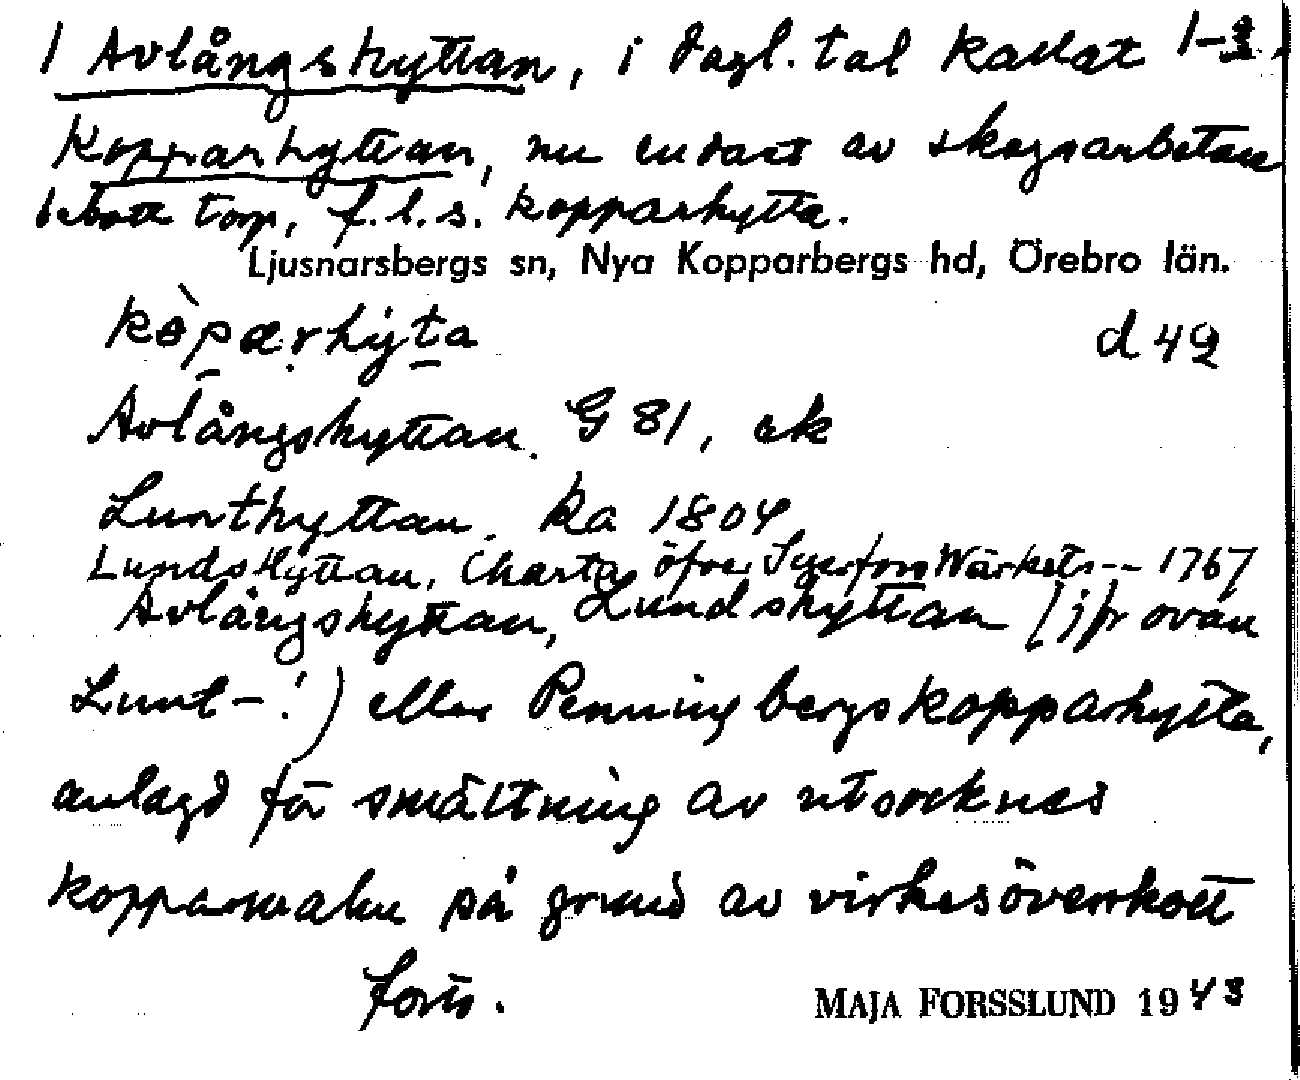 1 Avlångshyttan, i dagl. tal kallat 1-3.
Kopparhyttan, nu endast av skogsarbetare
bebott torp, f.l.s. kopparhytta.
Ljusnarsbergs sn, Nya Kopparbergs hd, Örebro län.
kòpærhyta d 42
Avlångshyttan. G 81, ek
Lunthyttan. ka 1804
Lundshyttan, Charta öfver Wärkets -- 1767
Avlångshyttan, Lundshyttan [jfr ovan
Lunt-!) eller Penningbergskopparhytta,
anlagd för smältning av utsocknes
kopparmalm på grund av virkesöverskott
förr.
MAJA FORSSLUND 1943